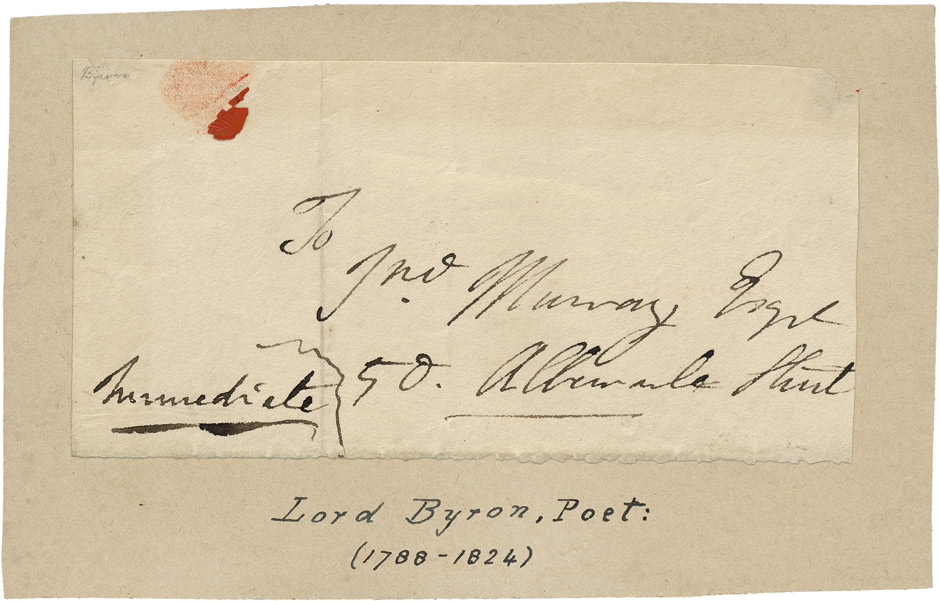 Byron
To
Jnᵒ Murray Esqre
Immediate
50. Albemarle Street
Lord Byron, Poet:
(1788-1824)